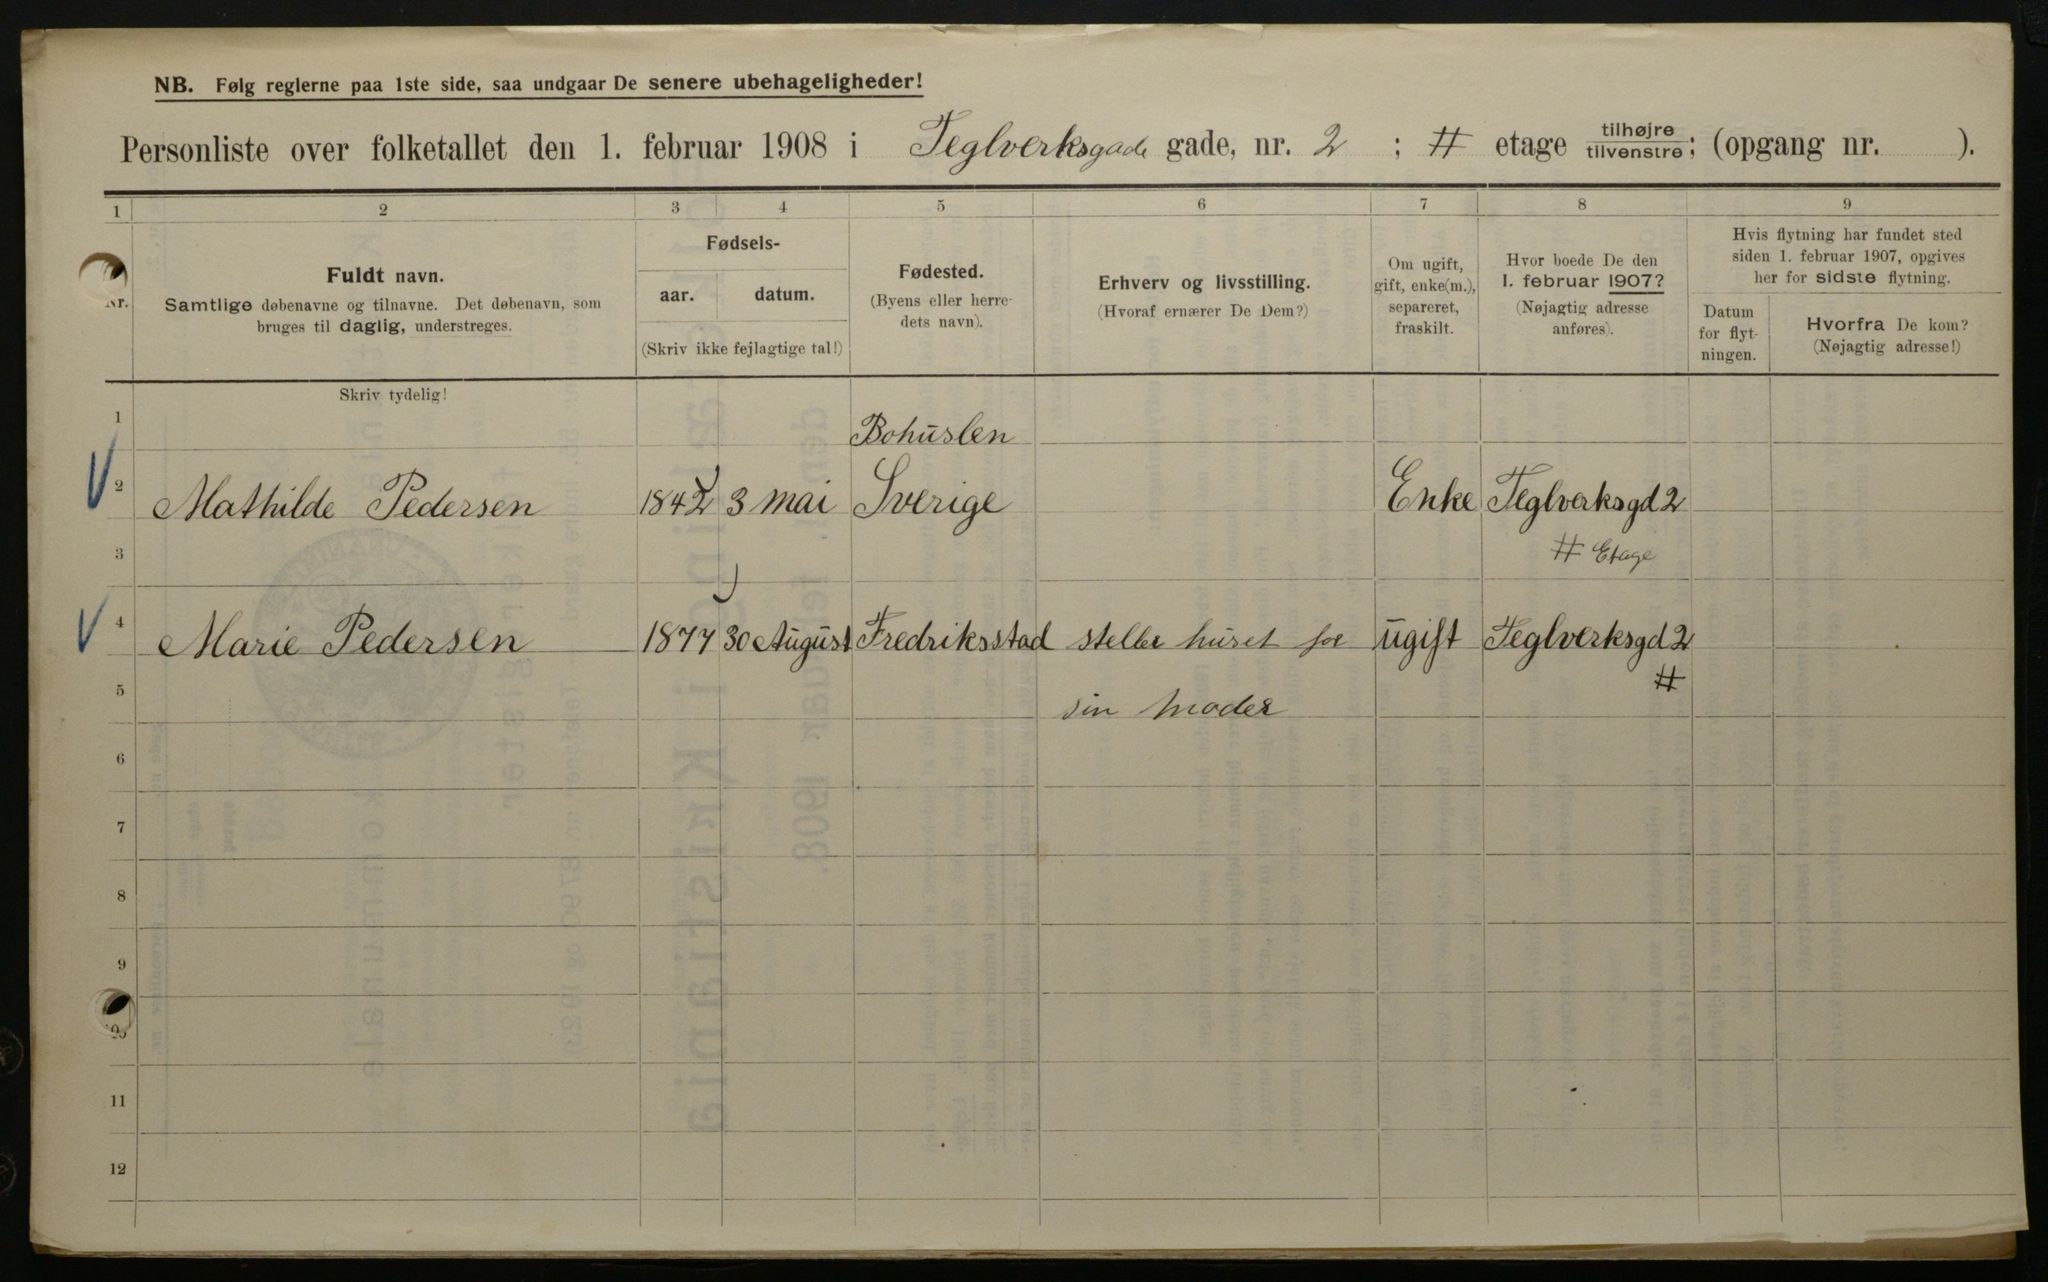 NB. Følg reglerne paa 1ste side, saa undgaar De senere ubehageligheder!
Personliste over folketallet den 1. februar 1908 i Teglverksgade gade, nr. 2 ; # etage tilhøjre tilvenstre; (opgang nr. ).
1 2 3 4 5 6 7 8 9
Nr.
Fuldt navn.
Samtlige døbenavne og tilnavne. Det døbenavn, som
bruges til daglig, understreges.
Fødsels-
aar. datum.
(Skriv ikke fejlagtige tal!)
Fødested.
(Byens eller herre-
dets navn).
Erhverv og livsstilling.
(Hvoraf ernærer De Dem?)
Om ugift,
gift, enke(m.),
separeret,
fraskilt.
Hvor boede De den
1. februar 1907?
(Nøjagtig adresse
anføres).
Hvis flytning har fundet sted
siden 1. februar 1907, opgives
her for sidste flytning.
Datum
for flyt-
ningen.
Hvorfra De kom?
(Nøjagtig adresse!)
Skriv tydelig!
1 Bohuslen
2 Mathilde Pedersen 1842 3 mai Sverige Enke Teglverksgd 2
3 # Etage
4 Marie Pedersen 1877 30 August Fredriksstad steller huset for ugift Teglverksgd 2
5 sin moder #
6
7
8
9
10
11
12